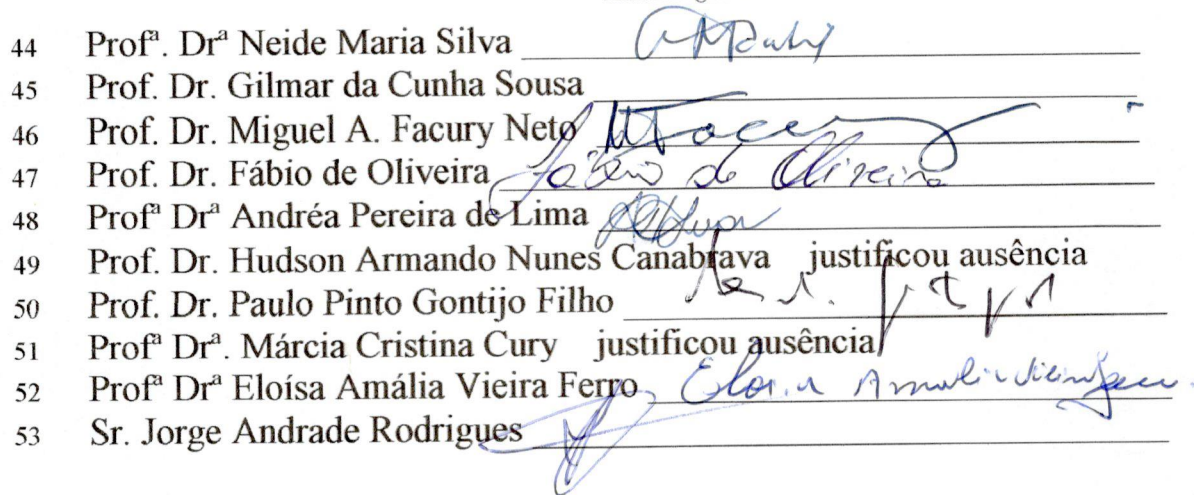 44 Profª. Drª Neide Maria Silva
45 Prof. Dr. Gilmar da Cunha Sousa
46 Prof. Dr. Miguel A. Facury Neto
47 Prof. Dr. Fábio de Oliveira Fábio de Oliveira
48 Profª Drª Andréa Pereira de Lima
49 Prof. Dr. Hudson Armando Nunes Canabrava justificou ausência
50 Prof. Dr. Paulo Pinto Gontijo Filho
51 Profª Drª. Márcia Cristina Cury justificou ausência
52 Profª Drª Eloísa Amália Vieira Ferro
53 Sr. Jorge Andrade Rodrigues